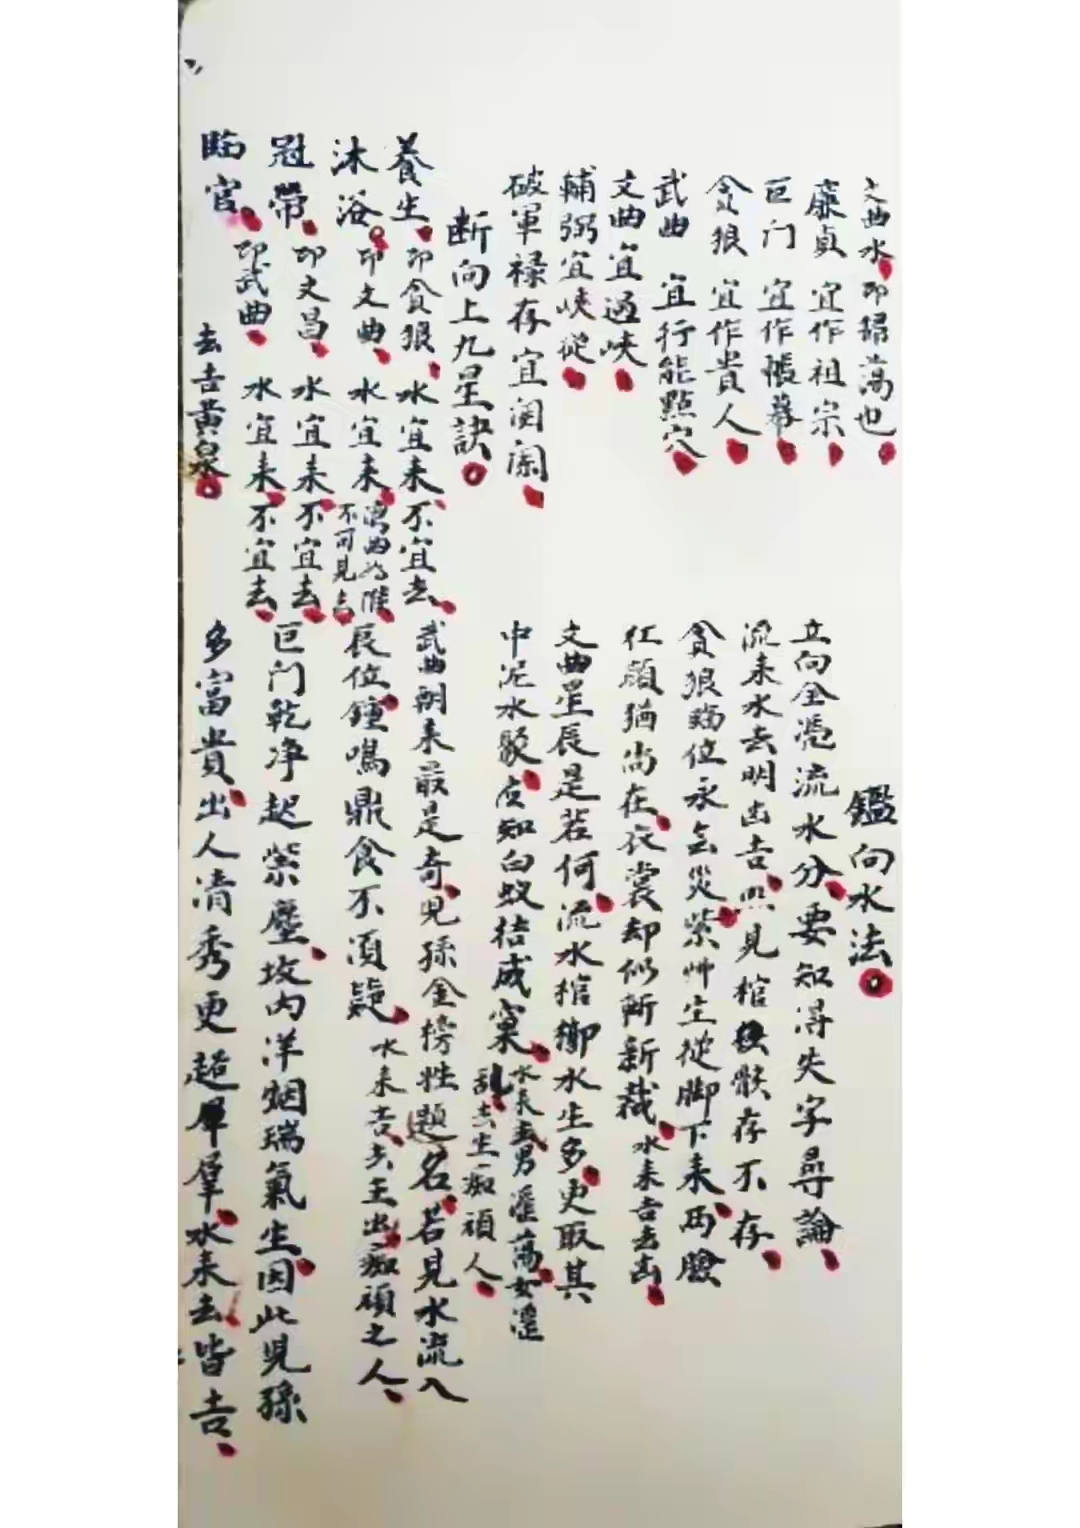 文曲水即掃蕩也
廉貞宜作祖宗
巨门宜作帳幕
貪狼宜作貴人
武曲宜行龍點穴
文曲宜過峽
輔弼宜峽從
破軍禄存宜関闌
断向上九星訣
養生即貪狼水宜来不宜去
沐浴即文曲水宜来
不可見去
冠帶即文昌水宜来不宜去
臨官即武曲水宜来不宜去
去吉黃泉
鑑向水法
立向全凴流水分要知淂失字尋論
流来水去明凶吉照見棺骸存不存
貪狼臨位永無災紫艸生從脚下来両臉
红顔猶尚在衣裳却似斬新裁水来吉去凶
文曲星辰是若何流水棺槨水生多更取其
中泥水聚白蚁结成窠
水来主男淫蕩女淫
乱去生痴頑人
武曲朝来最是奇児孫金榜姓題名若見水流入
辰位鐘鳴鼎食不湏疑水来吉去主出痴頑之人
巨门乾净起紫塵坟内洋烟瑞氣生因此児孫
多富貴出人清秀更超羣水来去皆吉